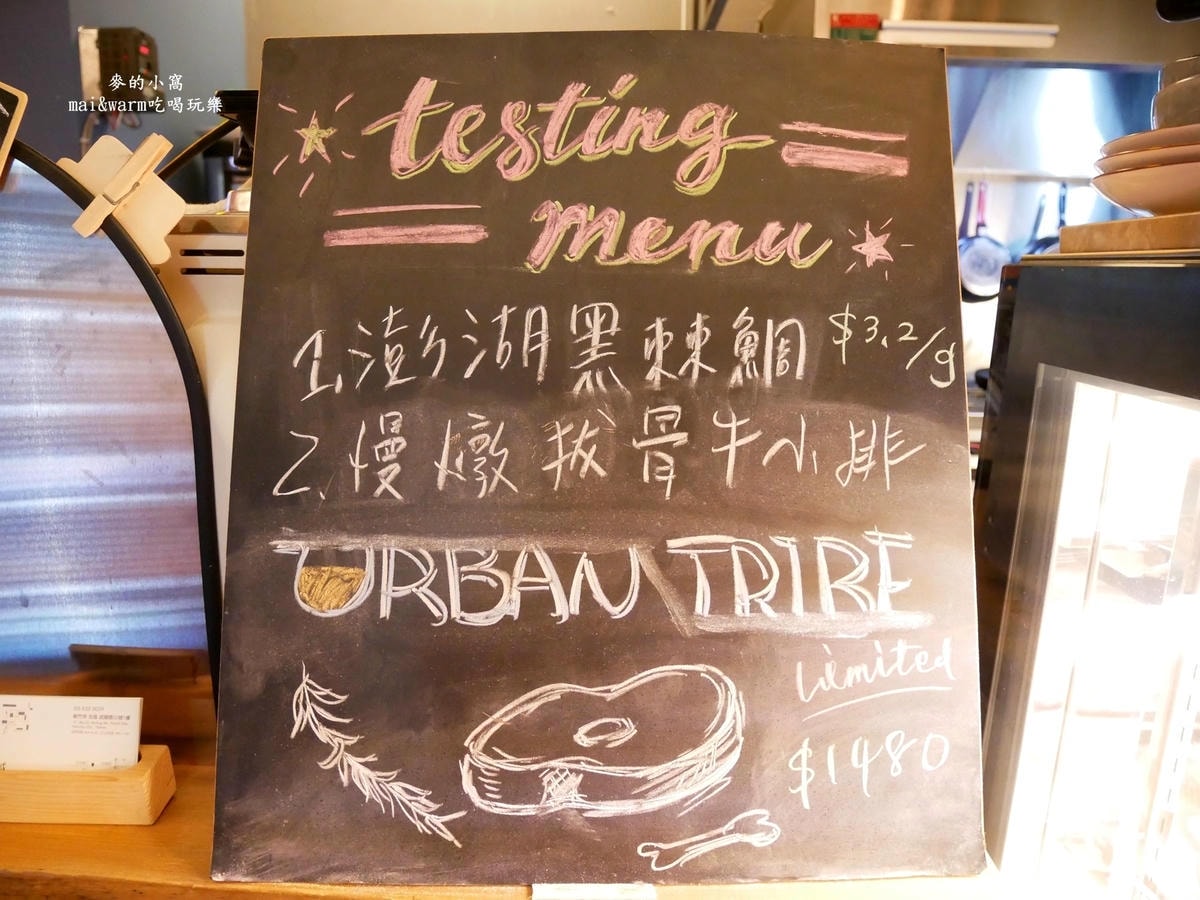 麥的小窩
mai&warm吃喝玩樂
testing
menu
1.澎湖黑棘鯛 $3.2/g
2.慢燉拔骨牛小排
URBAN TRIBE
Limited
$1480